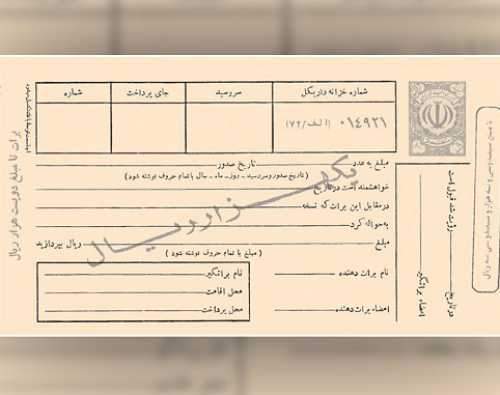 شماره خزانه داری کل
سررسید
جای پرداخت
شماره
۰۱۴۹۲۱ (الف/۷۲)
مبلغ به عدد تاریخ صدور
(تاریخ صدور و سررسید - روز - ماه - سال با تمام حروف نوشته شود)
خواهشمند است در تاریخ
در مقابل این برات که نسخه
به حواله کرد
مبلغ ریال بپردازید
(مبلغ با تمام حروف نوشته شود)
یکهزار ریال
نام برات دهنده
امضاء برات دهنده
نام براتگیر
محل اقامت
محل پرداخت
رؤیت شد قبول است
در تاریخ
امضاء براتگیر
برات تا مبلغ دویست هزار ریال